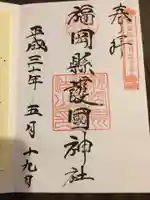 奉拝
福岡縣護國神社
平成三十年 五月 十九日